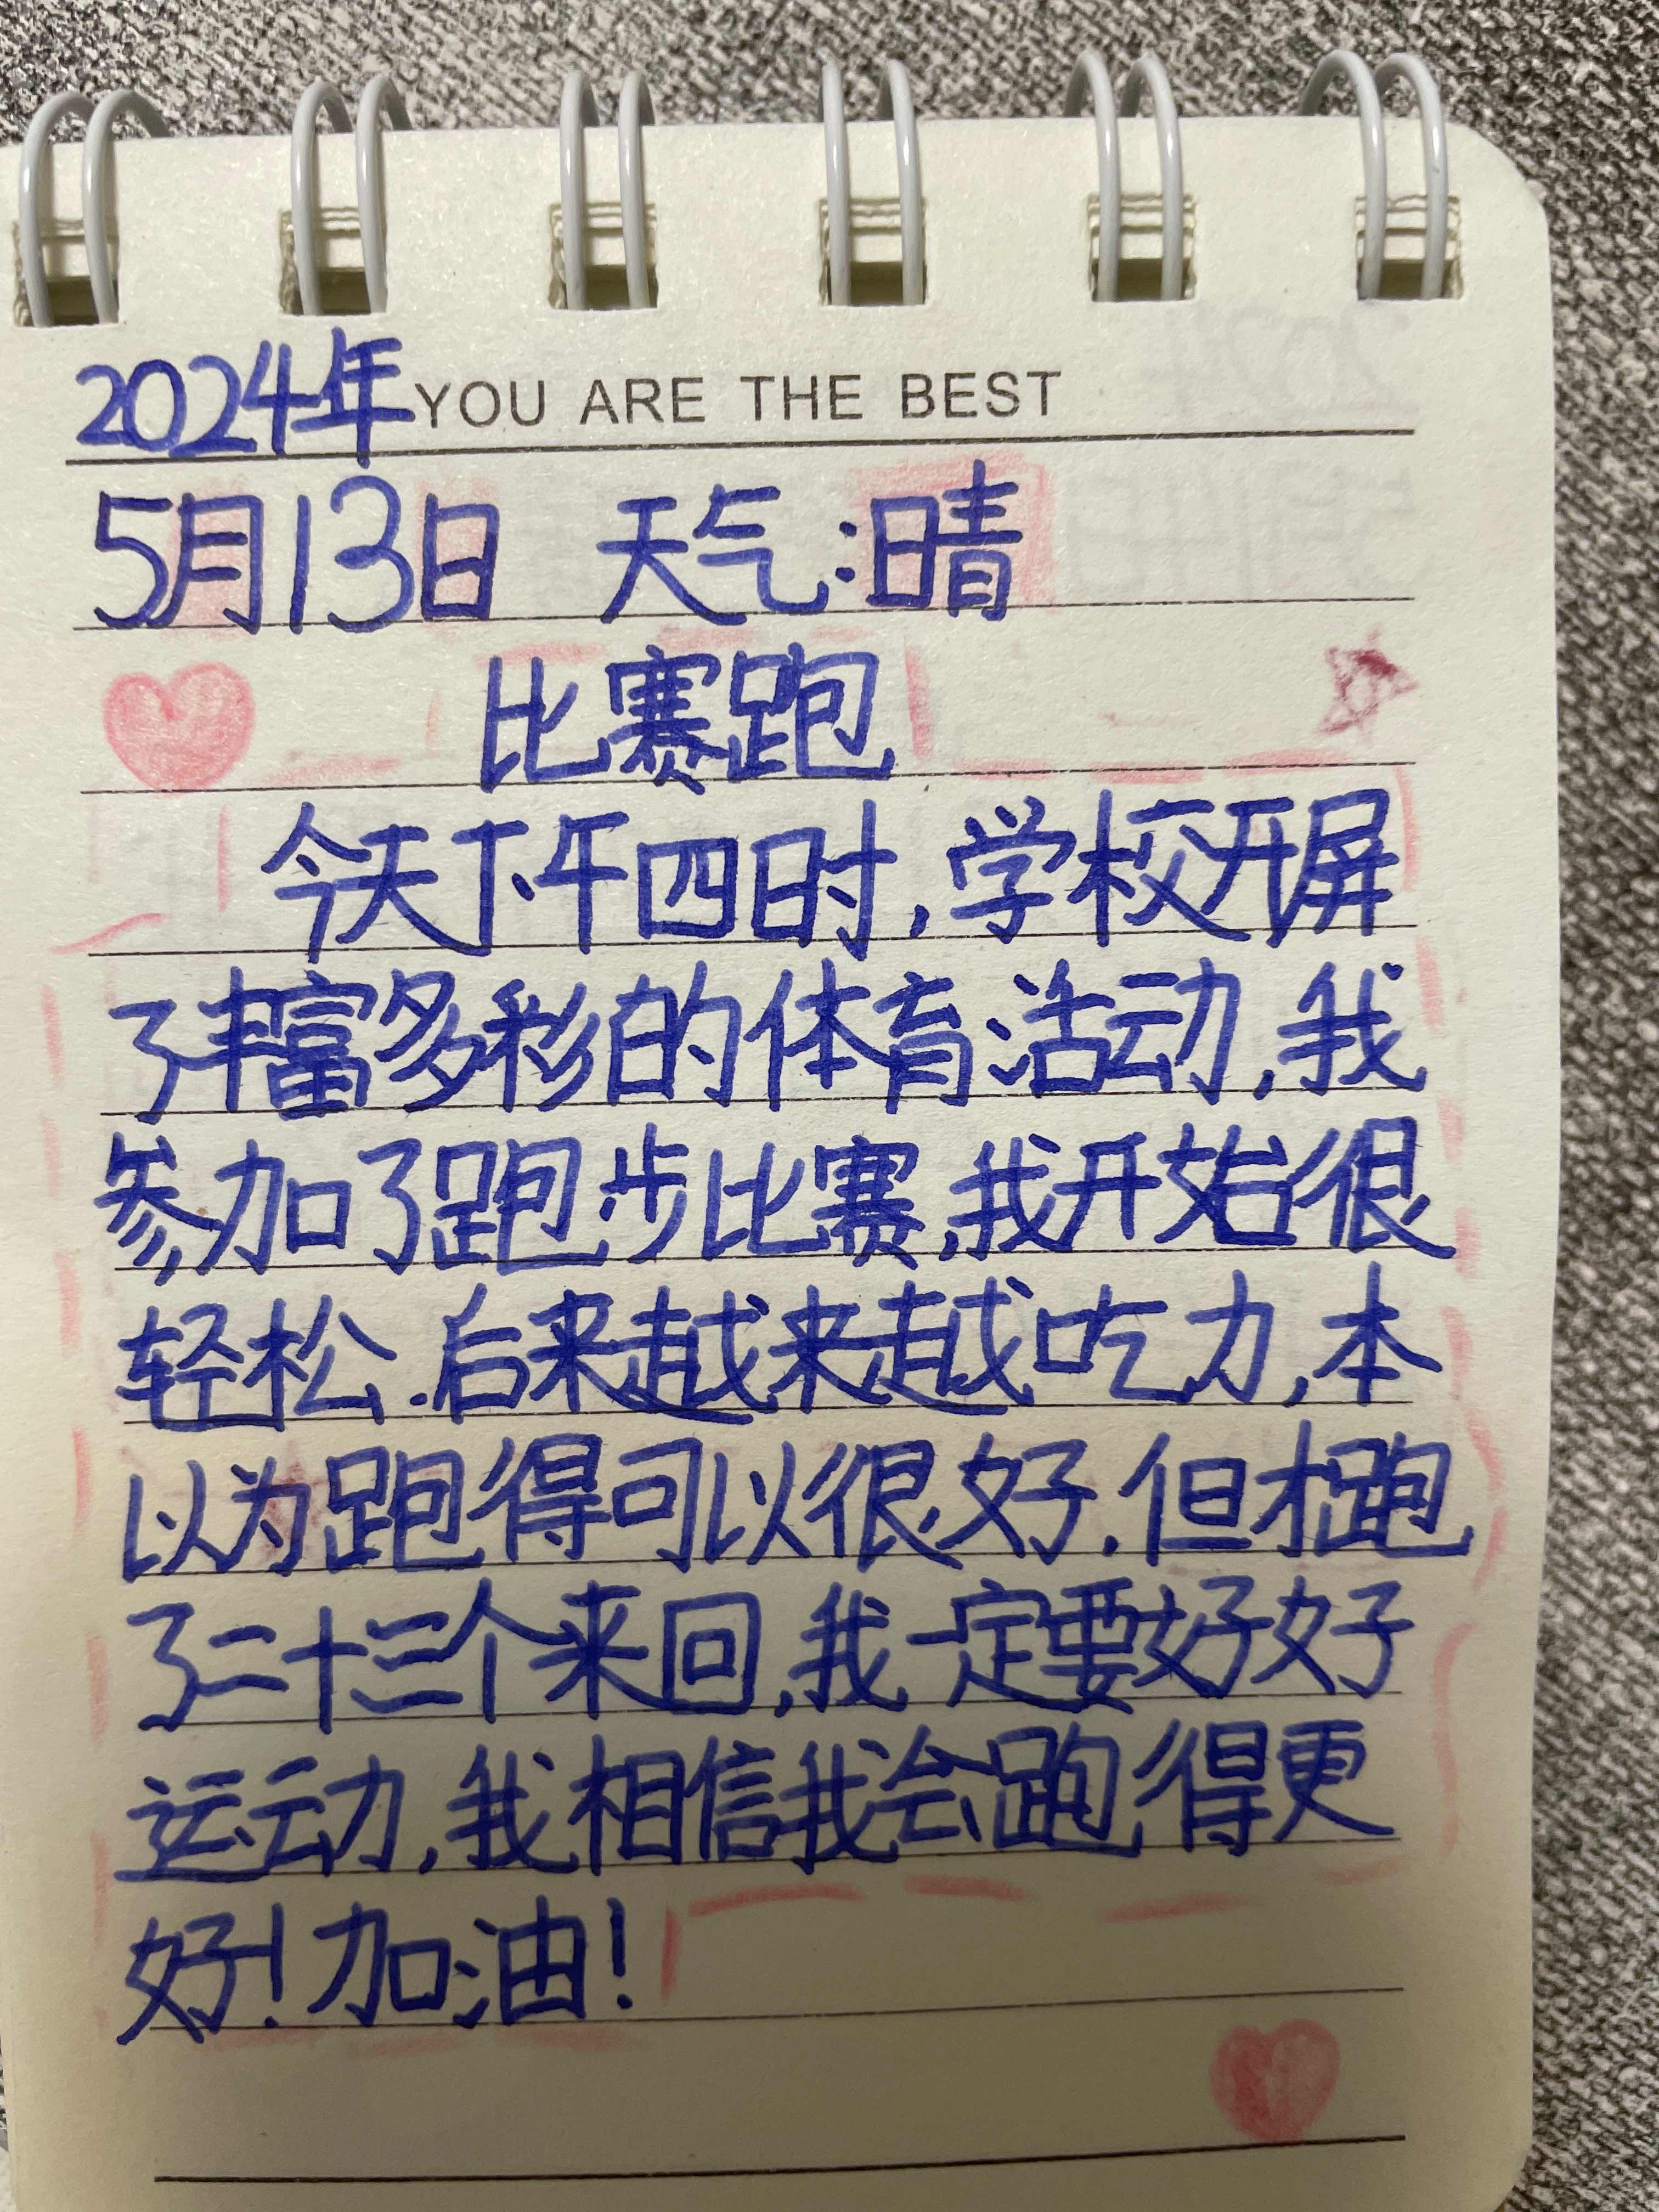 2024年YOU ARE THE BEST
5月13日 天气:晴
比赛跑
今天下午四时,学校开屏
了丰富多彩的体育活动,我
参加了跑步比赛,我开始很
轻松.后来越来越吃力,本
以为跑得可以很好.但才跑
了二十三个来回,我一定要好好
运动,我相信我会跑得更
好!加油!